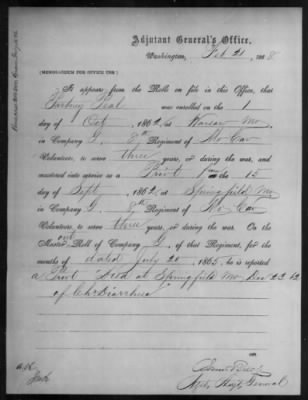 Adjutant General's Office,
Washington, Feb 21, 1868.
[MEMORANDUM FOR OFFICE USE.]
It appears from the Roll on file in this Office, that
Neal was enrolled on the 1
day of Oct, 1862, at Warsaw Mo,
in Company G, 8th Regiment of Mo Cav
Volunteers, to serve three years, or during the war, and
mustered into service as a Privt from the 15
day of Sept, 1862, at Springfield Mo,
in Company G, 8th Regiment of Mo Cav
Volunteers, to serve three years, or during the war. On the
Muster out Roll of Company G, of that Regiment, for the
months of dated July 20 1865, he is reported
a Privt "Died at Springfield Mo, Dec 23, 62
of Ch Diarrhea"
Asst. Adjt. General